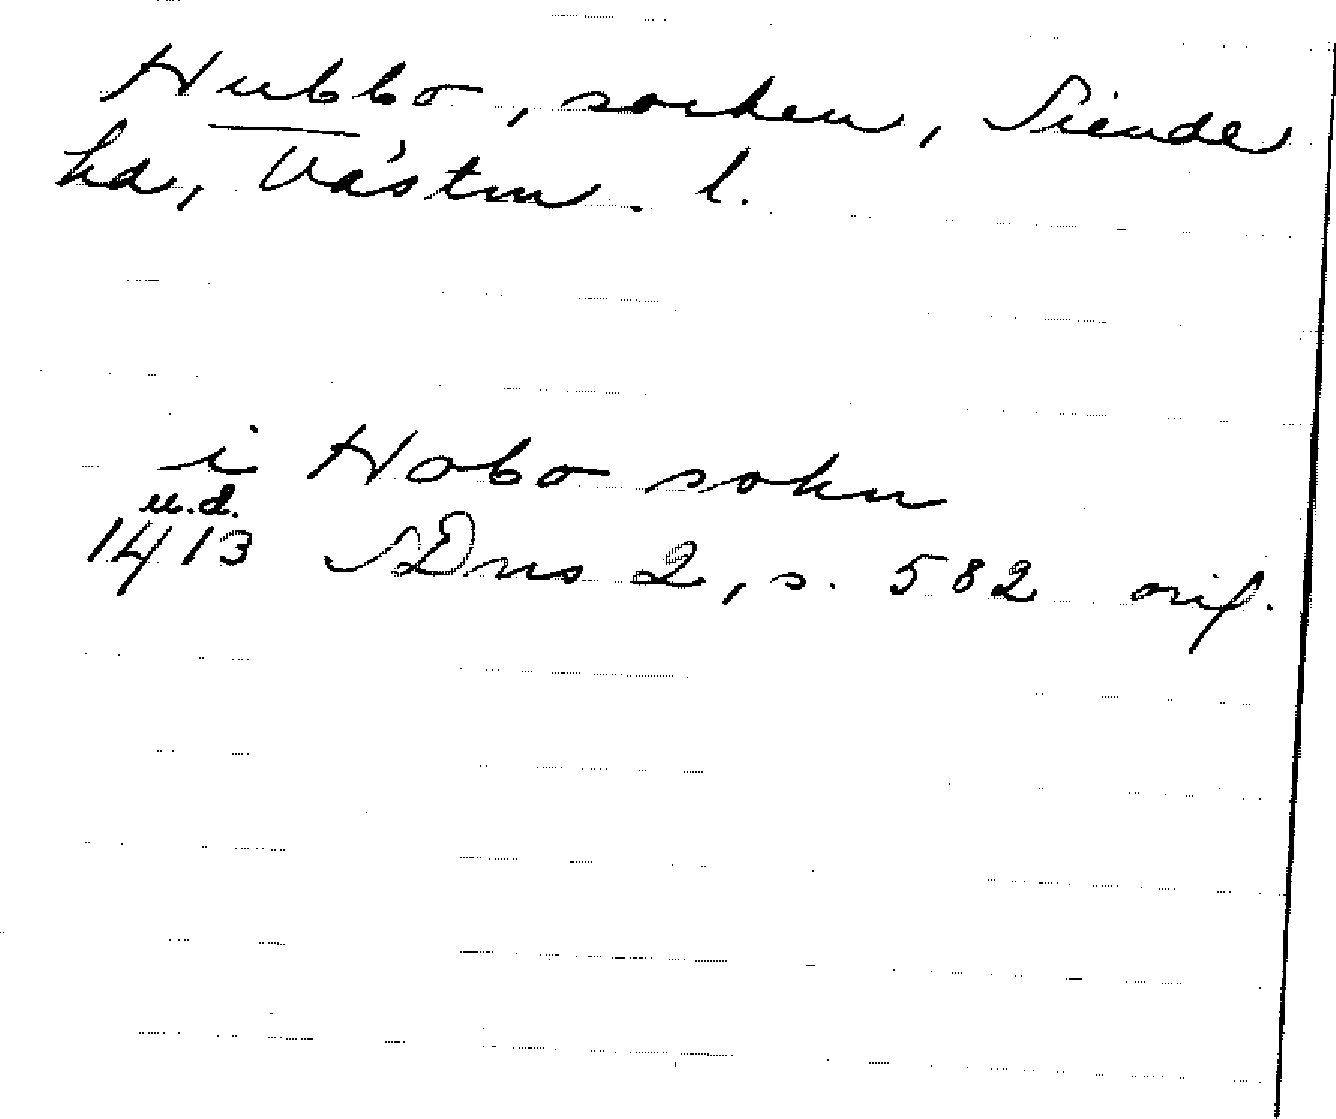 Hubbo, socken, Siende
hd, Västm. l.
i Hobo sokn
u.d.
1413 SDns 2, s. 582 orig.